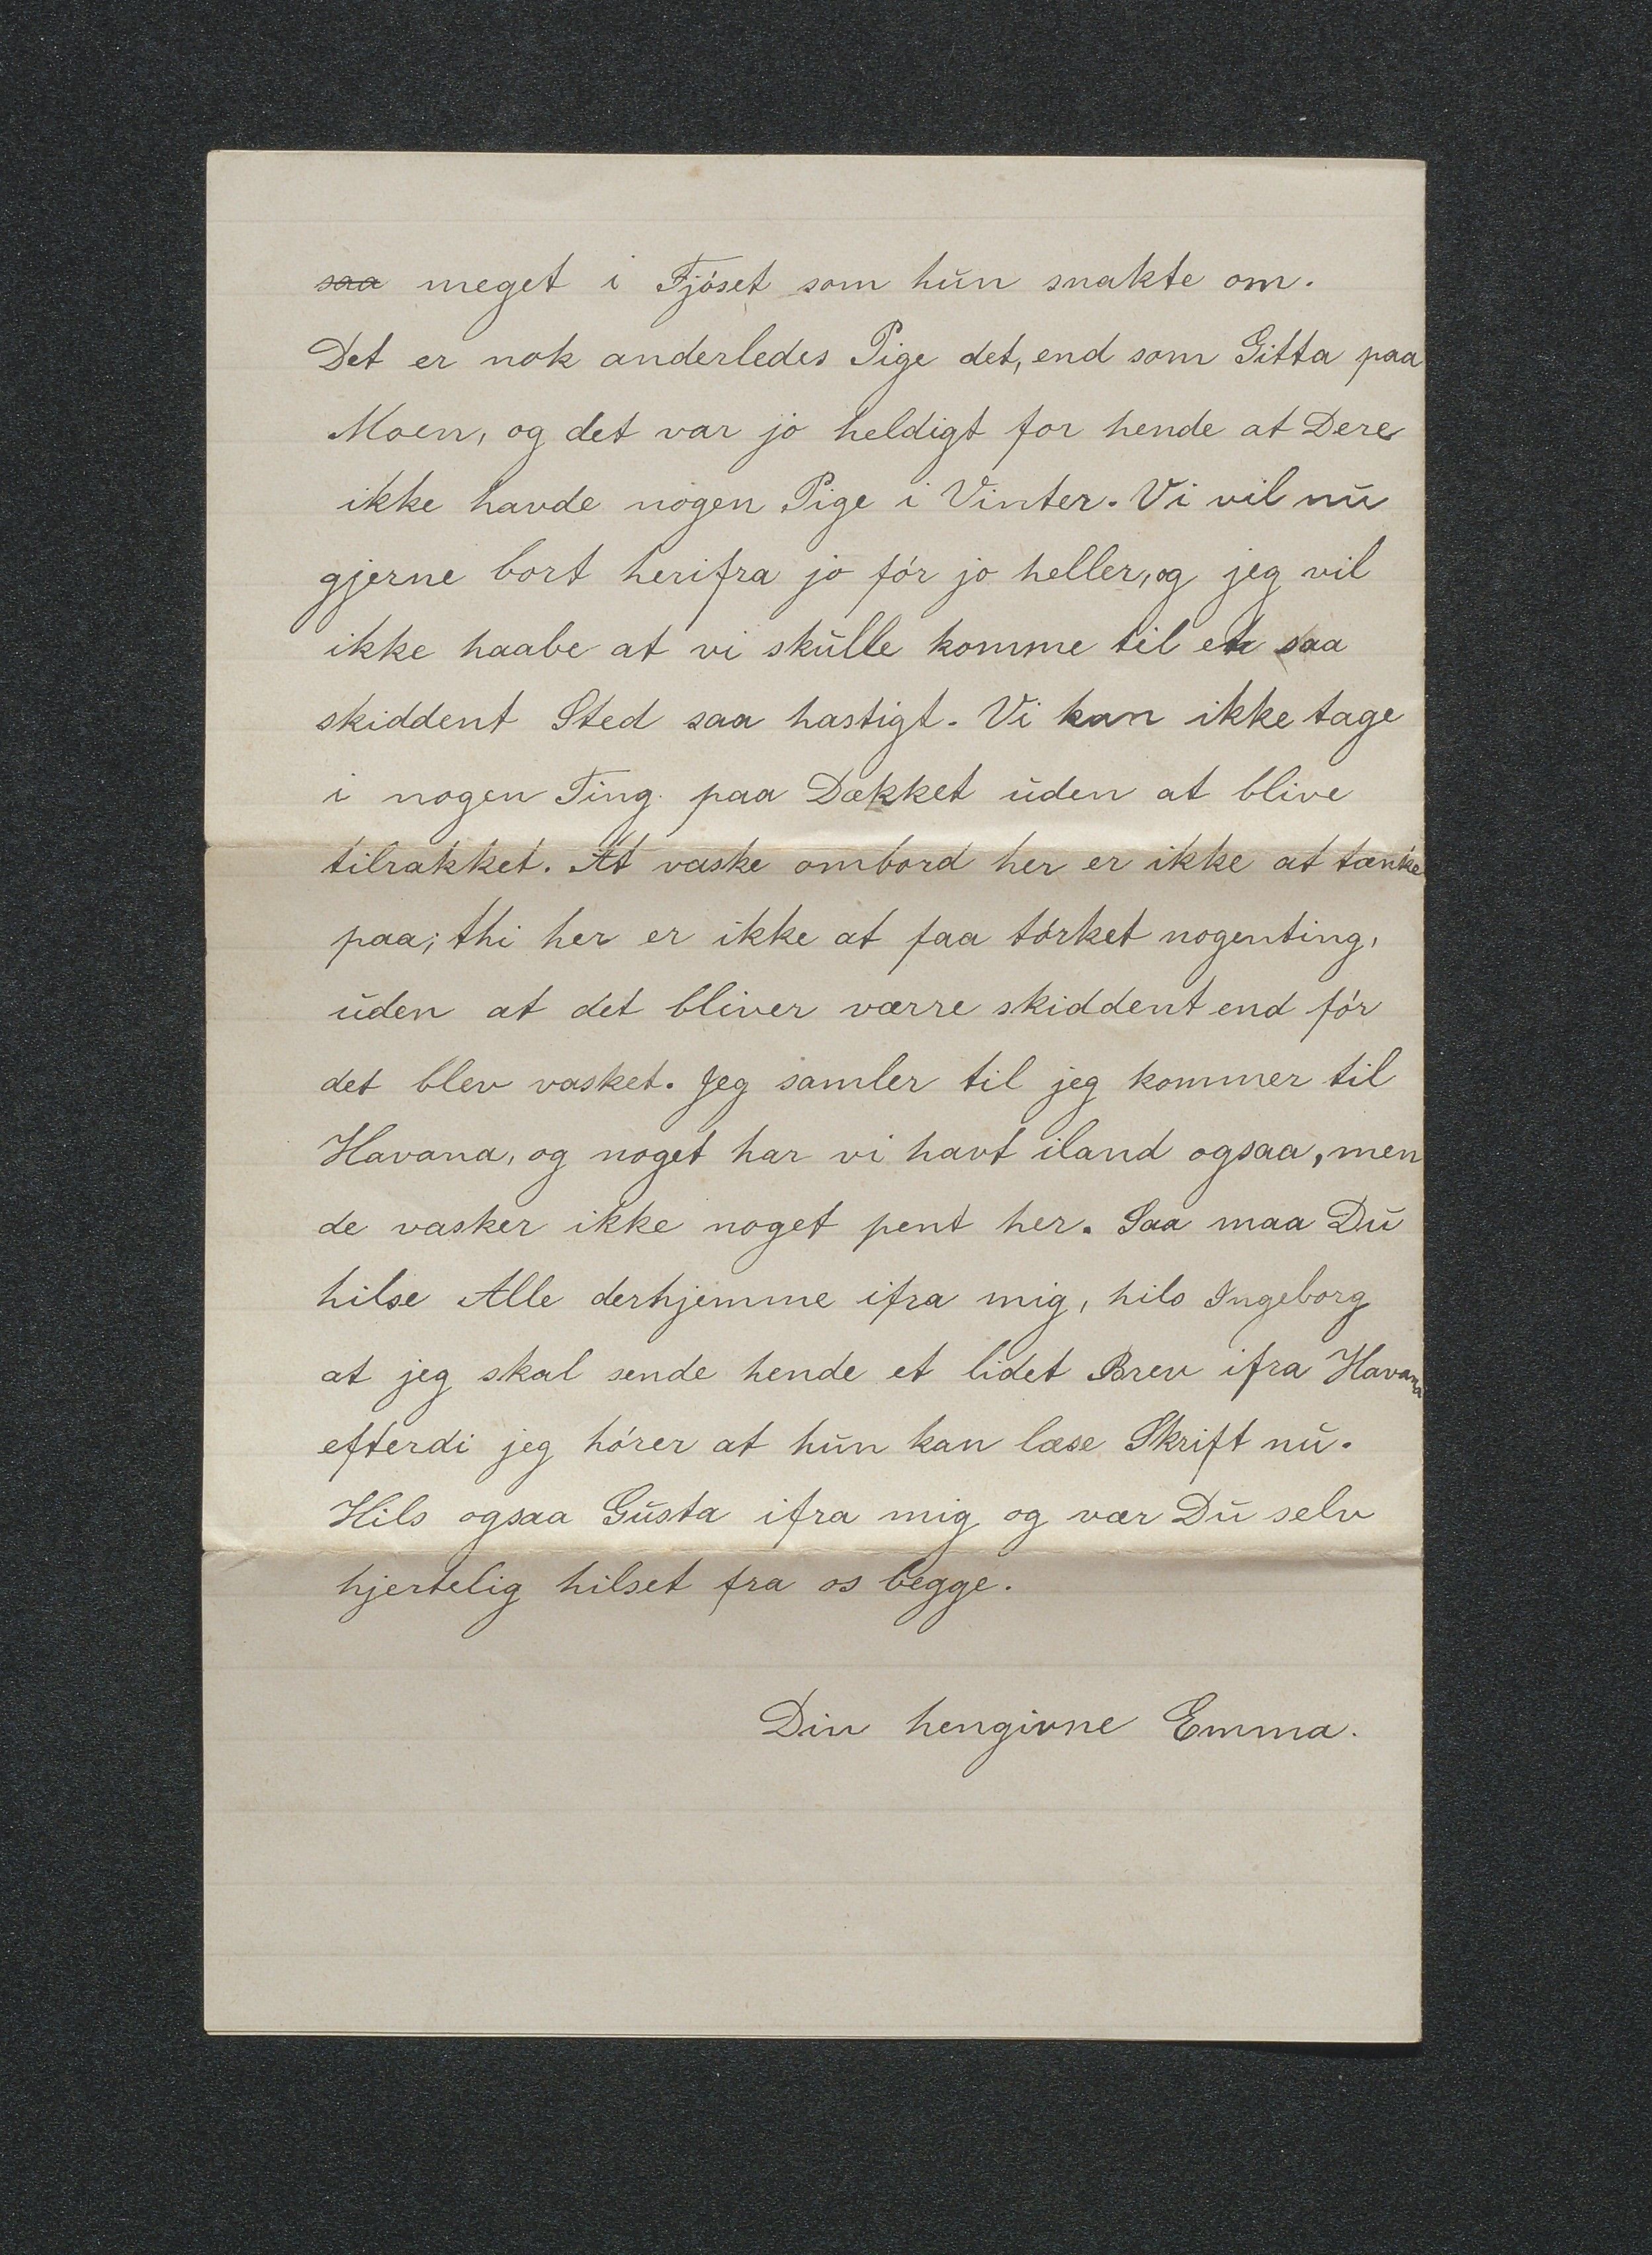 saa meget i Fjóset som hun snakte om.
Det er nok anderledes Pige det, end som Gitta paa
Moen, og det var jo heldigt for hende at Dere
ikke havde nogen Pige i Vinter. Vi vil nu
gjerne bort herifra jo fór jo heller, og jeg vil
ikke haabe at vi skulle komme til et saa
skiddent Sted saa hastigt. Vi kan ikke tage
i nogen Ting paa Dækket uden at blive
tilrakket. At vaske ombord her er ikke at tænke
paa; thi her er ikke at faa tórket nogenting,
uden at det bliver værre skiddent end fór
det blev vasket. Jeg samler til jeg kommer til
Havana, og noget har vi havt iland ogsaa, men
de vasker ikke noget pent her. Saa maa Du
hilse Alle derhjemme ifra mig, hils Ingeborg
at jeg skal sende hende et lidet Brev ifra Havana
efterdi jeg hórer at hun kan læse Skrift nu.
Hils ogsaa Gusta ifra mig og vær Du selv
hjertelig hilset fra os begge.
Din hengivne Emma.